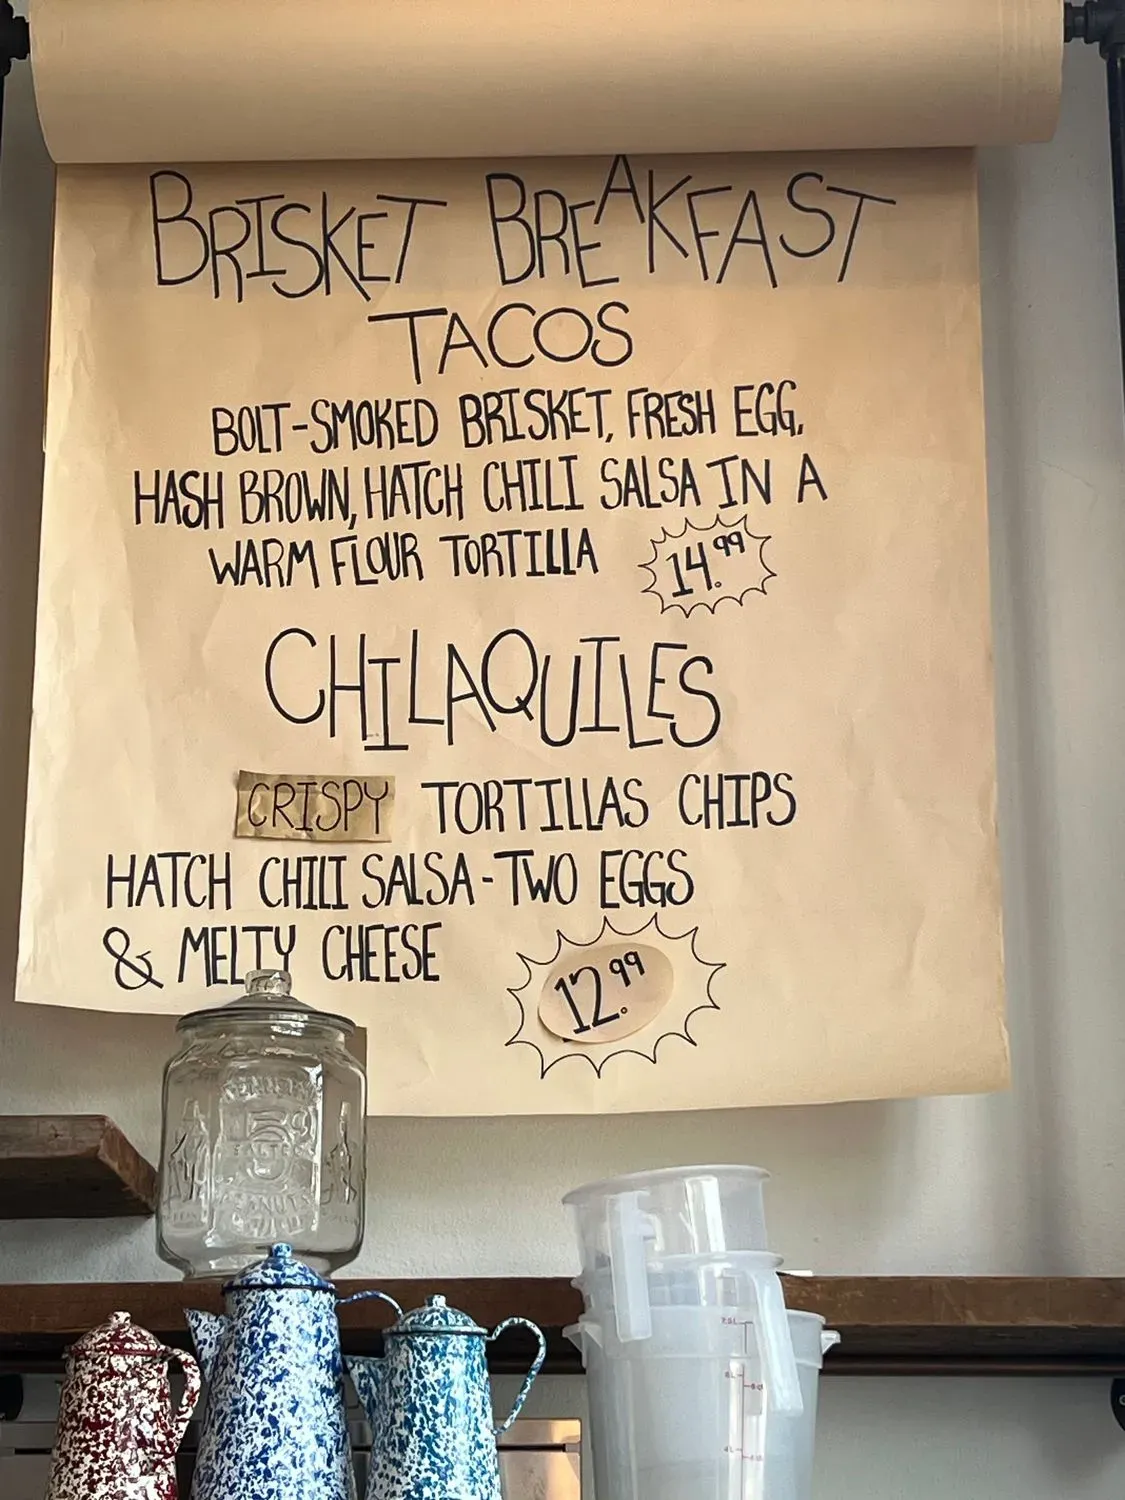 BRISKET BREAKFAST
TACOS
BOLT-SMOKED BRISKET, FRESH EGG,
HASH BROWN, HATCH CHILI SALSA IN A
WARM FLOUR TORTILLA 14.99
CHILAQUILES
CRISPY TORTILLAS CHIPS
HATCH CHILI SALSA - TWO EGGS
& MELTY CHEESE
12.99
5¢
SALTED
PEANUTS